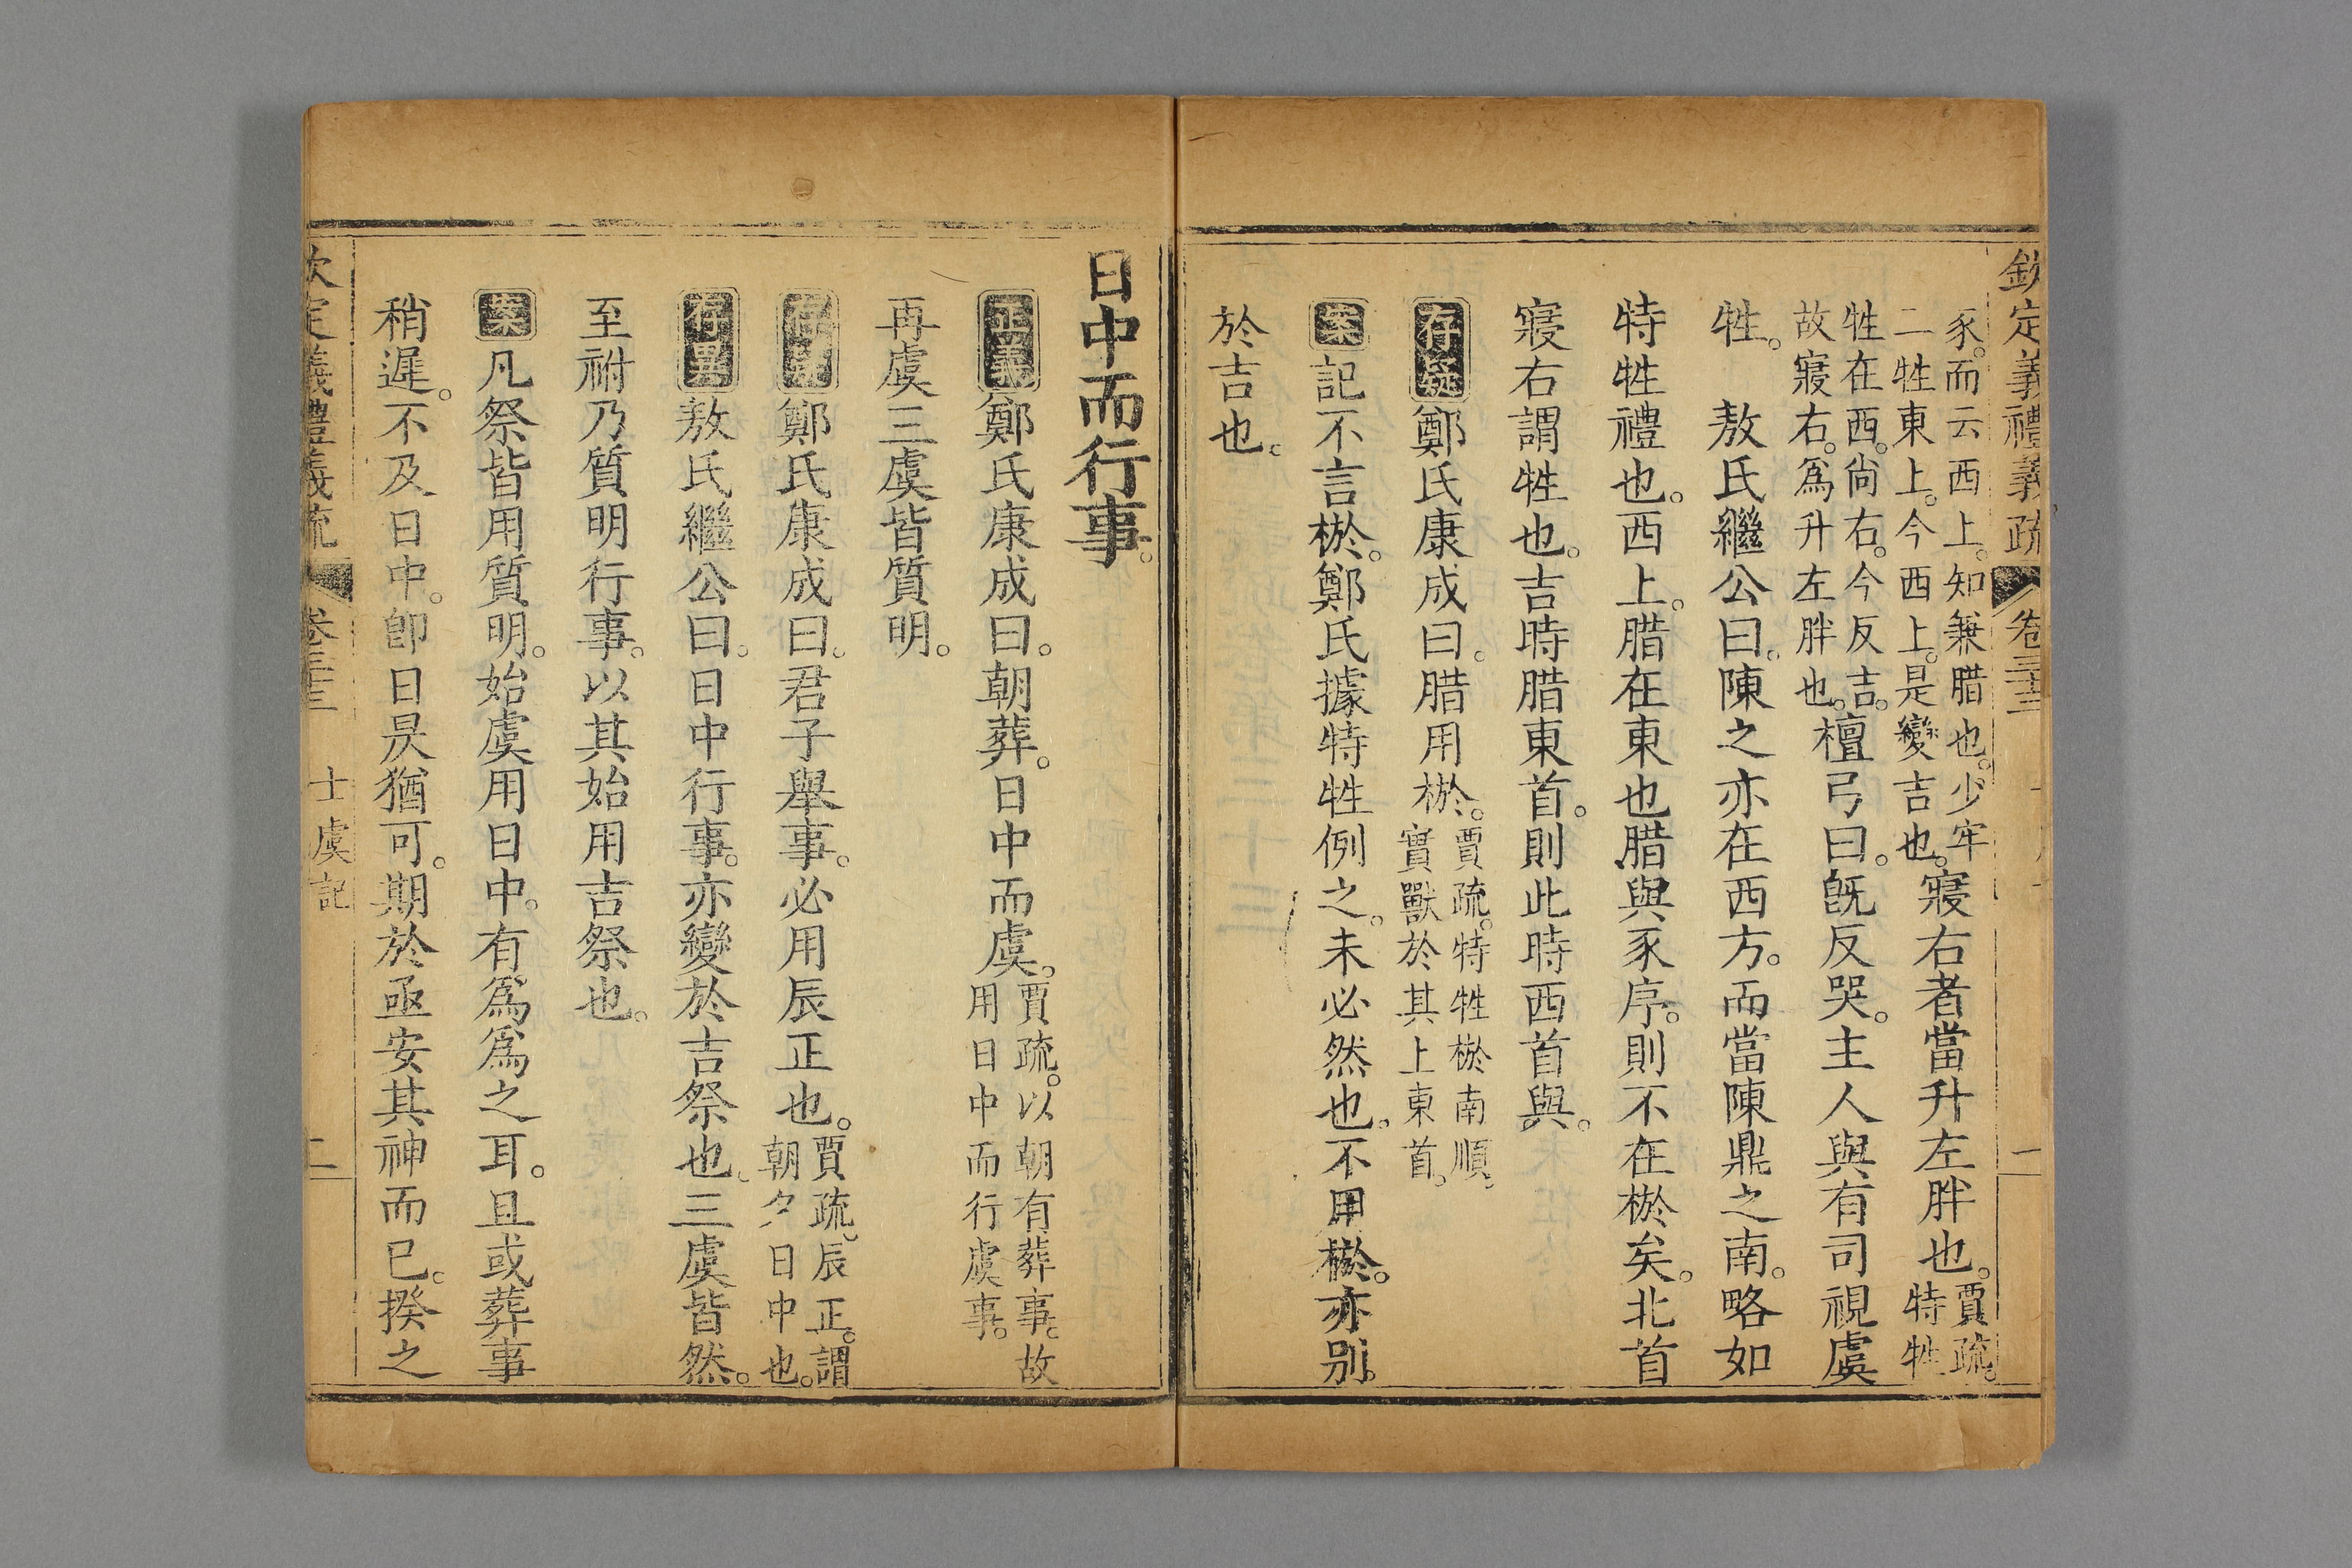 欽定義禮義疏 卷三十三 一
豕。而云西上。知兼腊也。少牢
二牲東上。今西上。是變吉也。
寢右者當升左胖也。
賈疏。
特牲
牲在西。尙右。今反吉。
故寢右。爲升左胖也。
檀弓曰。旣反哭。主人與有司視虞
牲。 敖氏繼公曰。陳之亦在西方。而當陳鼎之南。略如
特牲禮也。西上。腊在東也腊與豕序。則不在棜矣。北首
寢右謂牲也。吉時腊東首。則此時西首與。
存疑鄭氏康成曰。腊用棜。
賈疏。特牲棜南順。
實獸於其上東首。
案記不言棜。鄭氏據特牲例之。未必然也。不用棜。亦別
於吉也。
日中而行事。
正義鄭氏康成曰。朝葬。日中而虞。
賈疏。以朝有葬事。故
用日中而行虞事。
再虞三虞皆質明。
存疑鄭氏康成曰。君子舉事。必用辰正也。
賈疏。辰正。謂
朝夕日中也。
存異敖氏繼公曰。日中行事。亦變於吉祭也。三虞皆然。
至祔乃質明行事。以其始用吉祭也。
案凡祭皆用質明。始虞用日中。有爲爲之耳。且或葬事
稍遲。不及日中。卽日昃猶可。期於亟安其神而已。揆之
欽定義禮義疏 卷三十三 士虞記 二